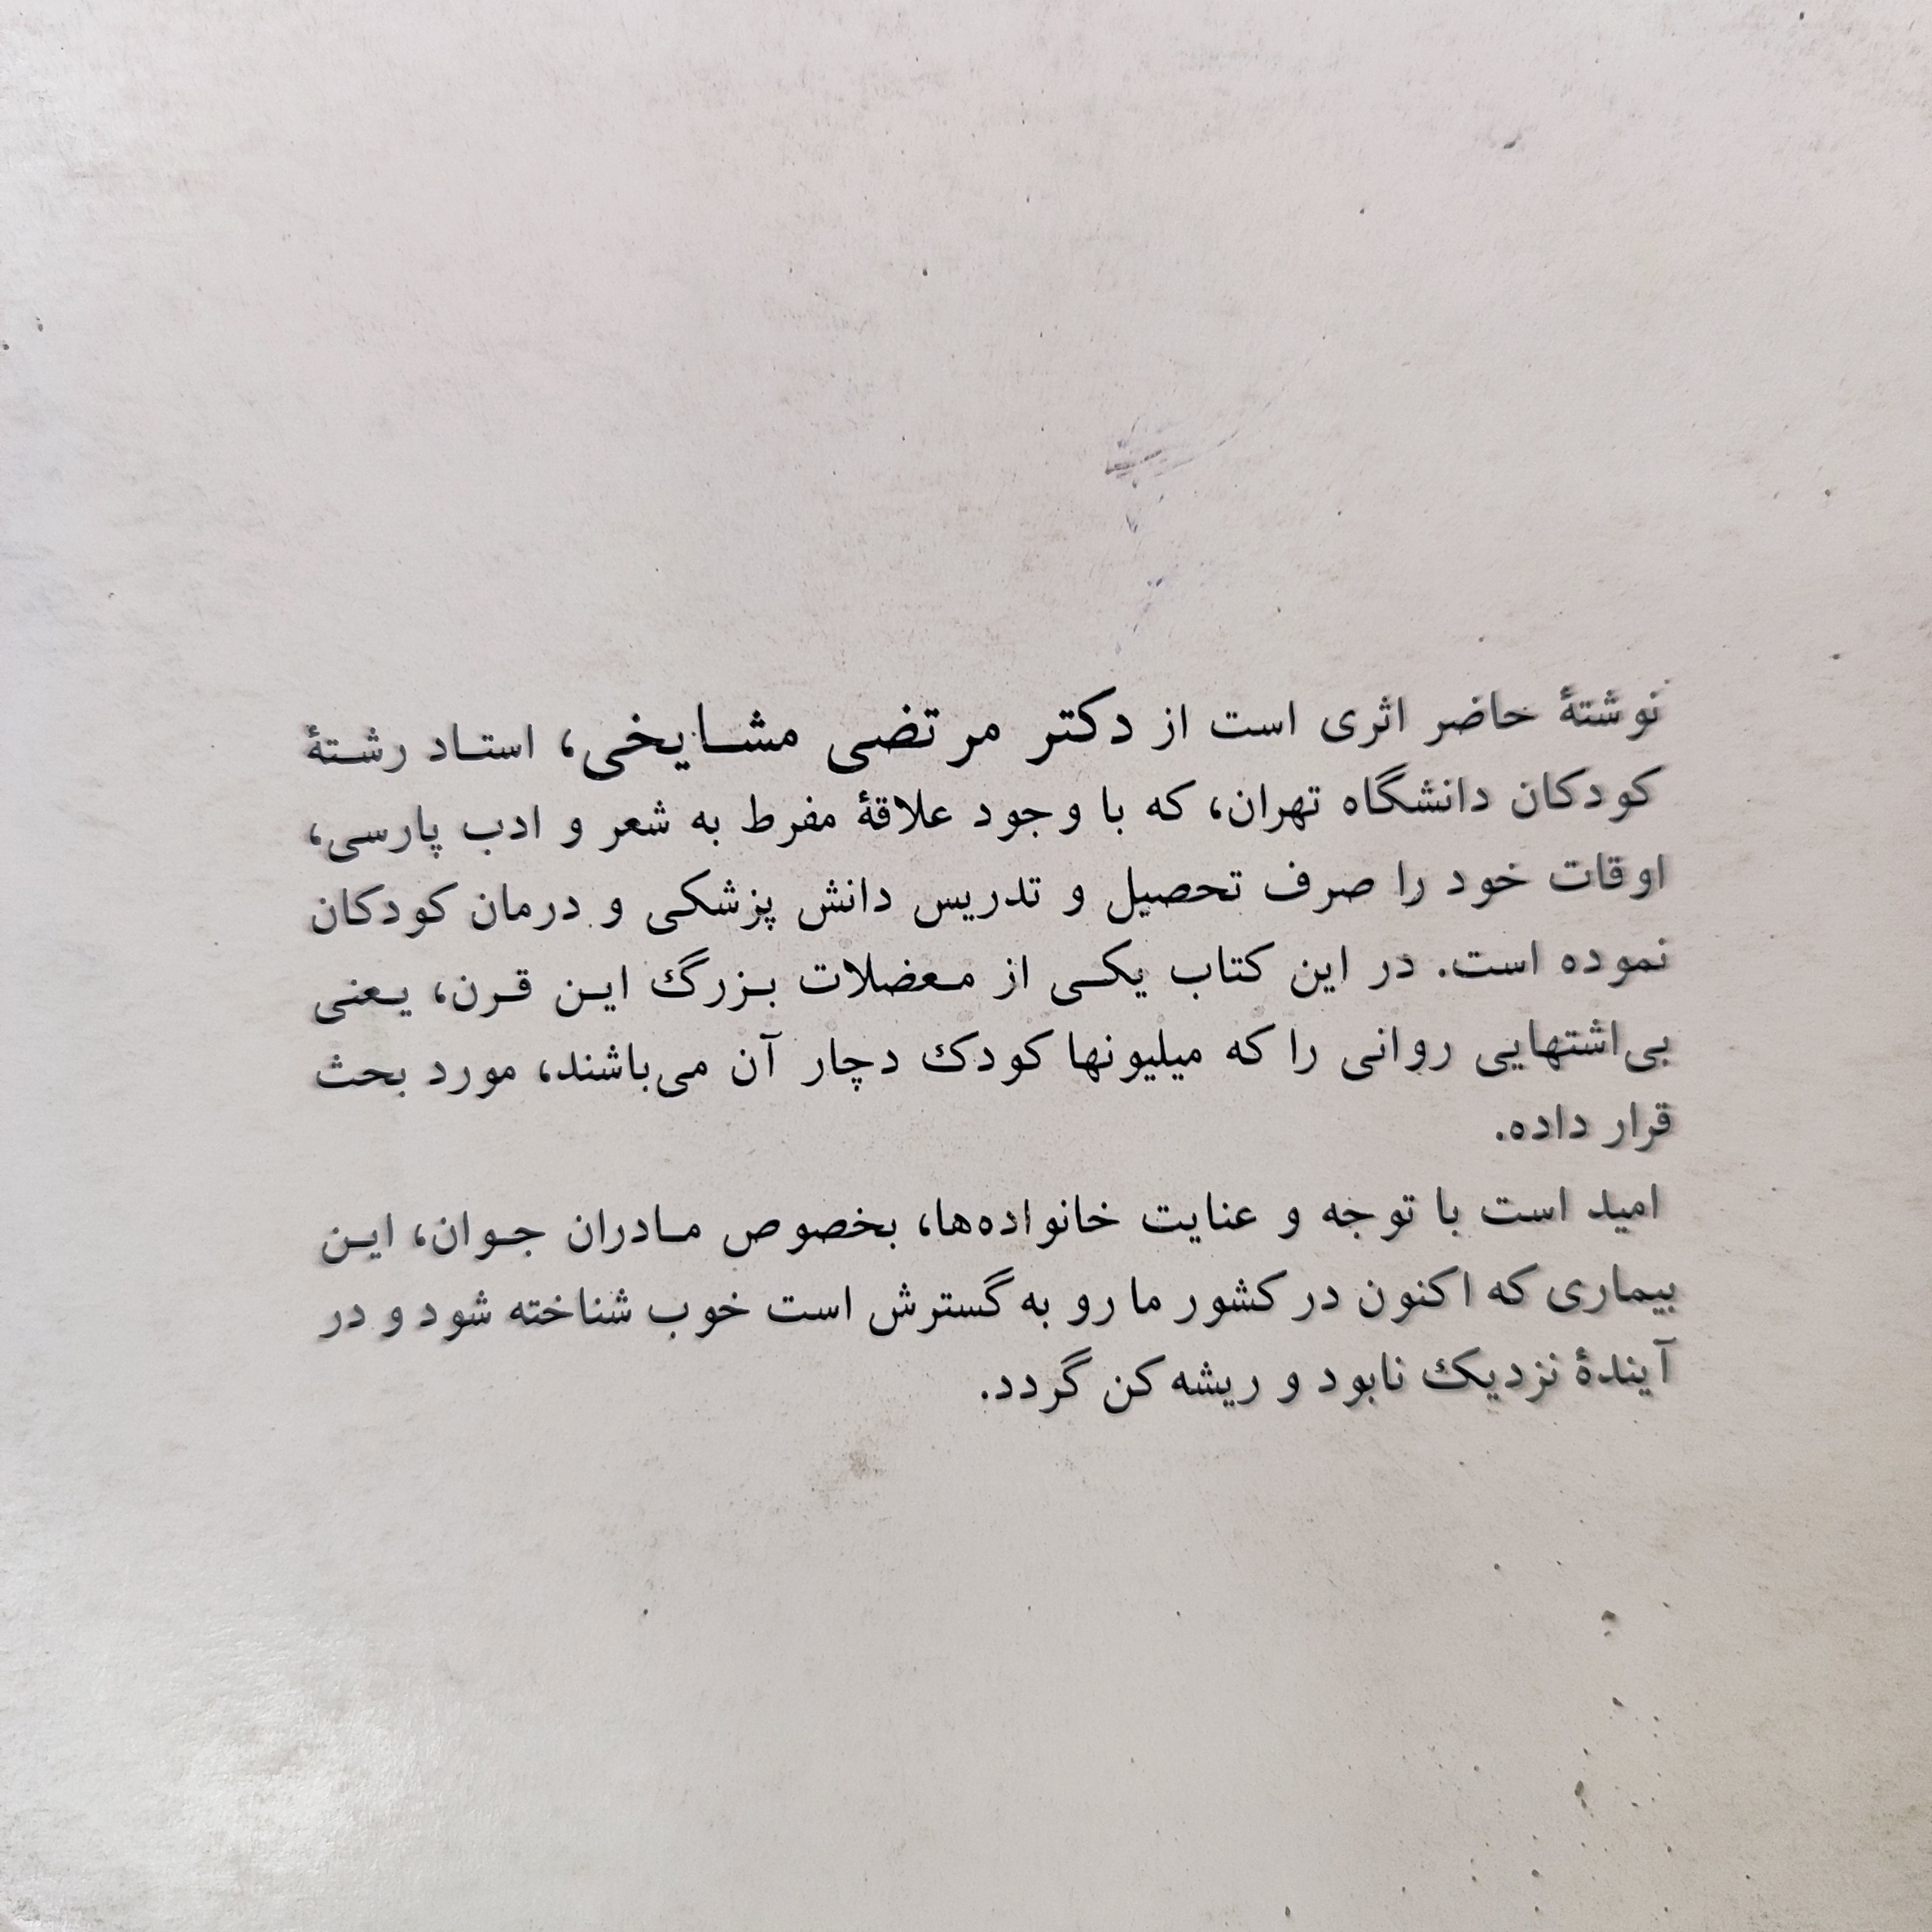 نوشتهٔ حاضر اثری است از دکتر مرتضی مشایخی، استاد رشتهٔ
کودکان دانشگاه تهران، که با وجود علاقهٔ مفرط به شعر و ادب پارسی،
اوقات خود را صرف تحصیل و تدریس دانش پزشکی و درمان کودکان
نموده است. در این کتاب یکی از معضلات بزرگ این قرن، یعنی
بی‌اشتهایی روانی را که میلیونها کودک دچار آن می‌باشند، مورد بحث
قرار داده.
امید است با توجه و عنایت خانواده‌ها، بخصوص مادران جوان، این
بیماری که اکنون در کشور ما رو به گسترش است خوب شناخته شود و در
آیندهٔ نزدیک نابود و ریشه کن گردد.